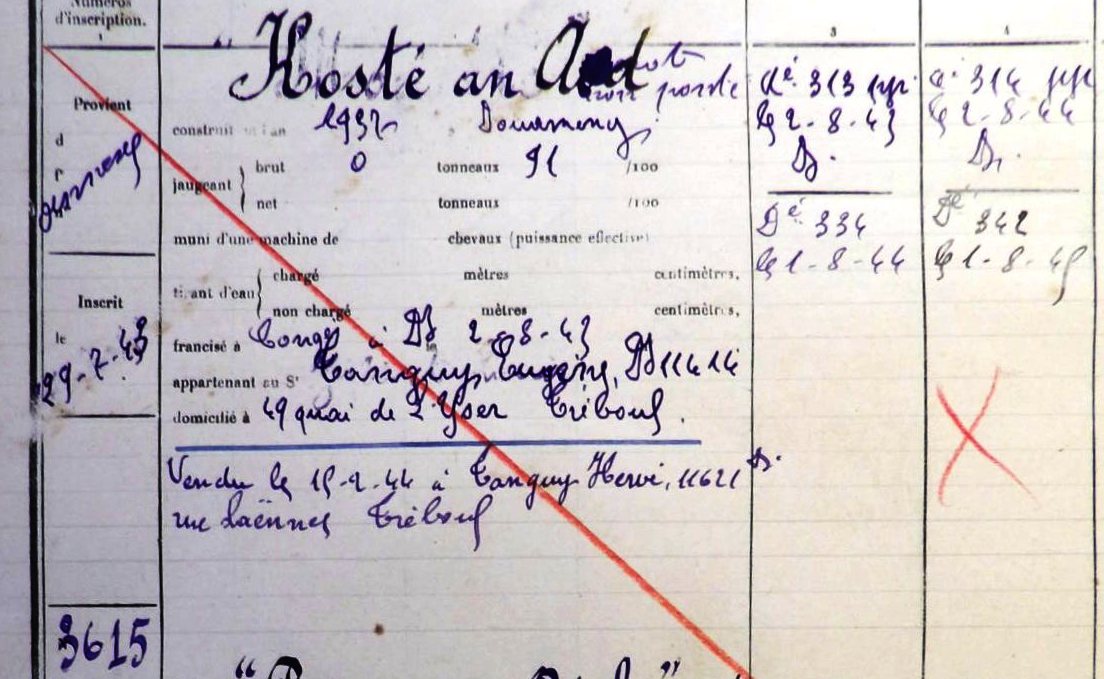 Numéros
d'inscription.
3
4
1
"Kosté an A d
construit en l'an 1932 Douarnenez
Provient
d
brut 0 tonneaux 91 /100
jaugeant
net tonneaux /100
muni d'une machine de chevaux (puissance effective)
chargé mètres centimètres,
tirant d'eau
non chargé mètres centimètres,
Inscrit
le
29-7-43
francisé à Congé à DZ le 2-8-43
appartenant au Sr Tanguy Eugène, DZ 11414
domicilié à 49 quai de l'Yser Tréboul.
Vendu le 15-2-44 à Tanguy Hervé, 11621 Dz
rue Laënnec Tréboul
Dé 313
le 2-8-43
Dz.
Dé 334
le 1-8-44
Dé 314
le 2-8-44
Dz.
Dé 342
le 1-8-45
3615